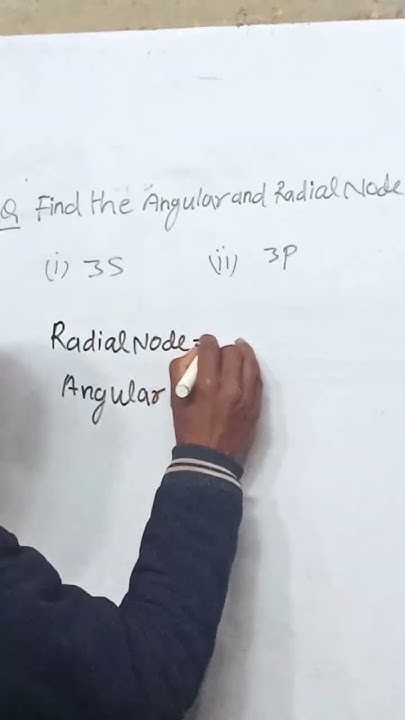 Q Find the Angular and Radial Node
(i) 3S (ii) 3P
Radial Node =
Angular